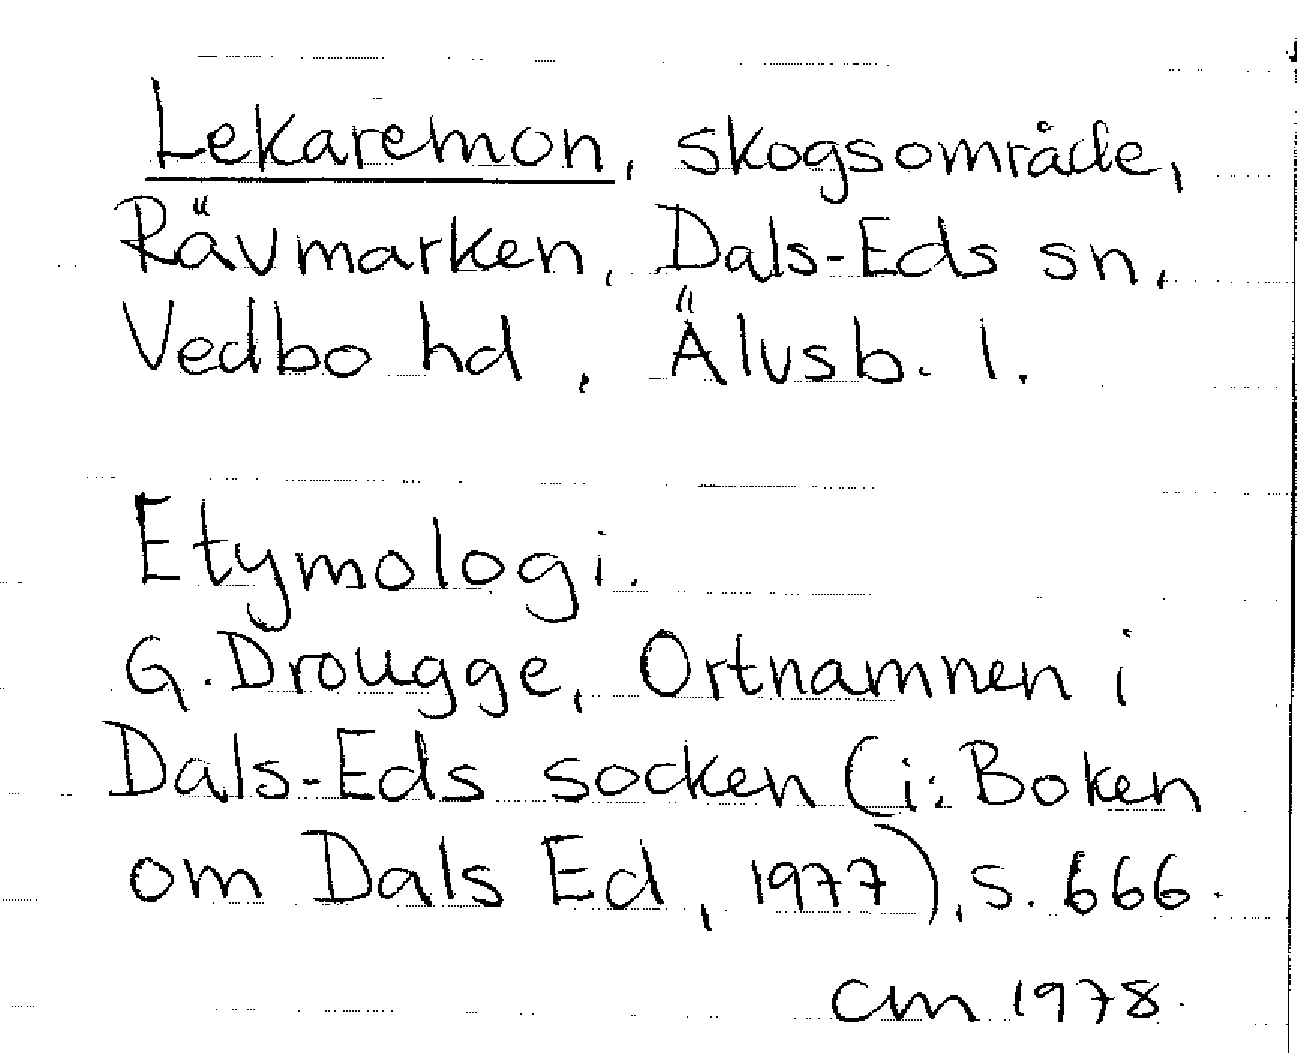 Lekaremon, skogsområde,
Rävmarken, Dals-Eds sn,
Vedbo hd, Älvsb. l.
Etymologi.
G. Drougge, Ortnamnen i
Dals-Eds socken (i: Boken
om Dals Ed, 1977), s. 666.
CM 1978.